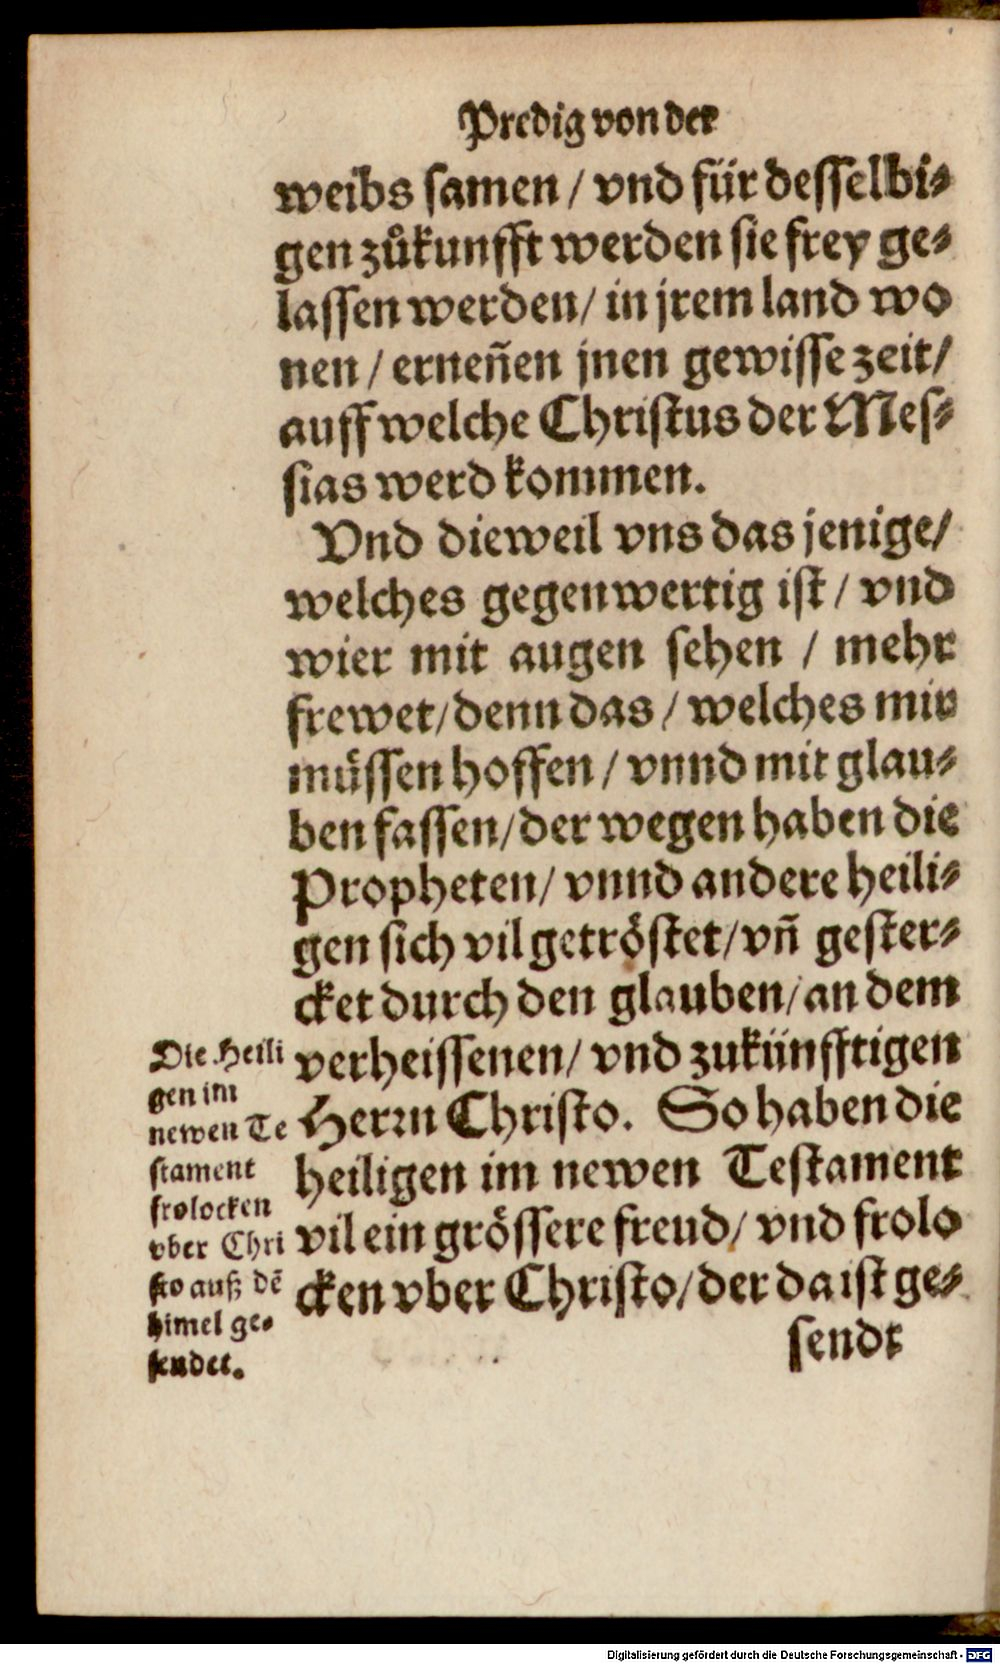 Predig von der
weibs samen / vnd für desselbi⸗
gen zůkunfft werden sie frey ge⸗
lassen werden / in jrem land wo
nen / erneñen jnen gewisse zeit /
auff welche Christus der Mes⸗
sias werd kommen.
Vnd dieweil vns das jenige /
welches gegenwertig ist / vnd
wier mit augen sehen / mehr
frewet / denn das / welches mir
müssen hoffen / vnnd mit glau⸗
ben fassen / der wegen haben die
Propheten / vnnd andere heili⸗
gen sich vil getröstet / vñ gester⸗
cket durch den glauben / an dem
verheissenen / vnd zukünfftigen
Herrn Christo. So haben die
heiligen im newen Testament
vil ein grössere freud / vnd frolo
cken vber Christo / der da ist ge⸗
sendt
Die Heili
gen im
newen Te
stament
frolocken
vber Chri
sto auß dē
himel ge⸗
sendet.
Digitalisierung gefördert durch die Deutsche Forschungsgemeinschaft - DFG